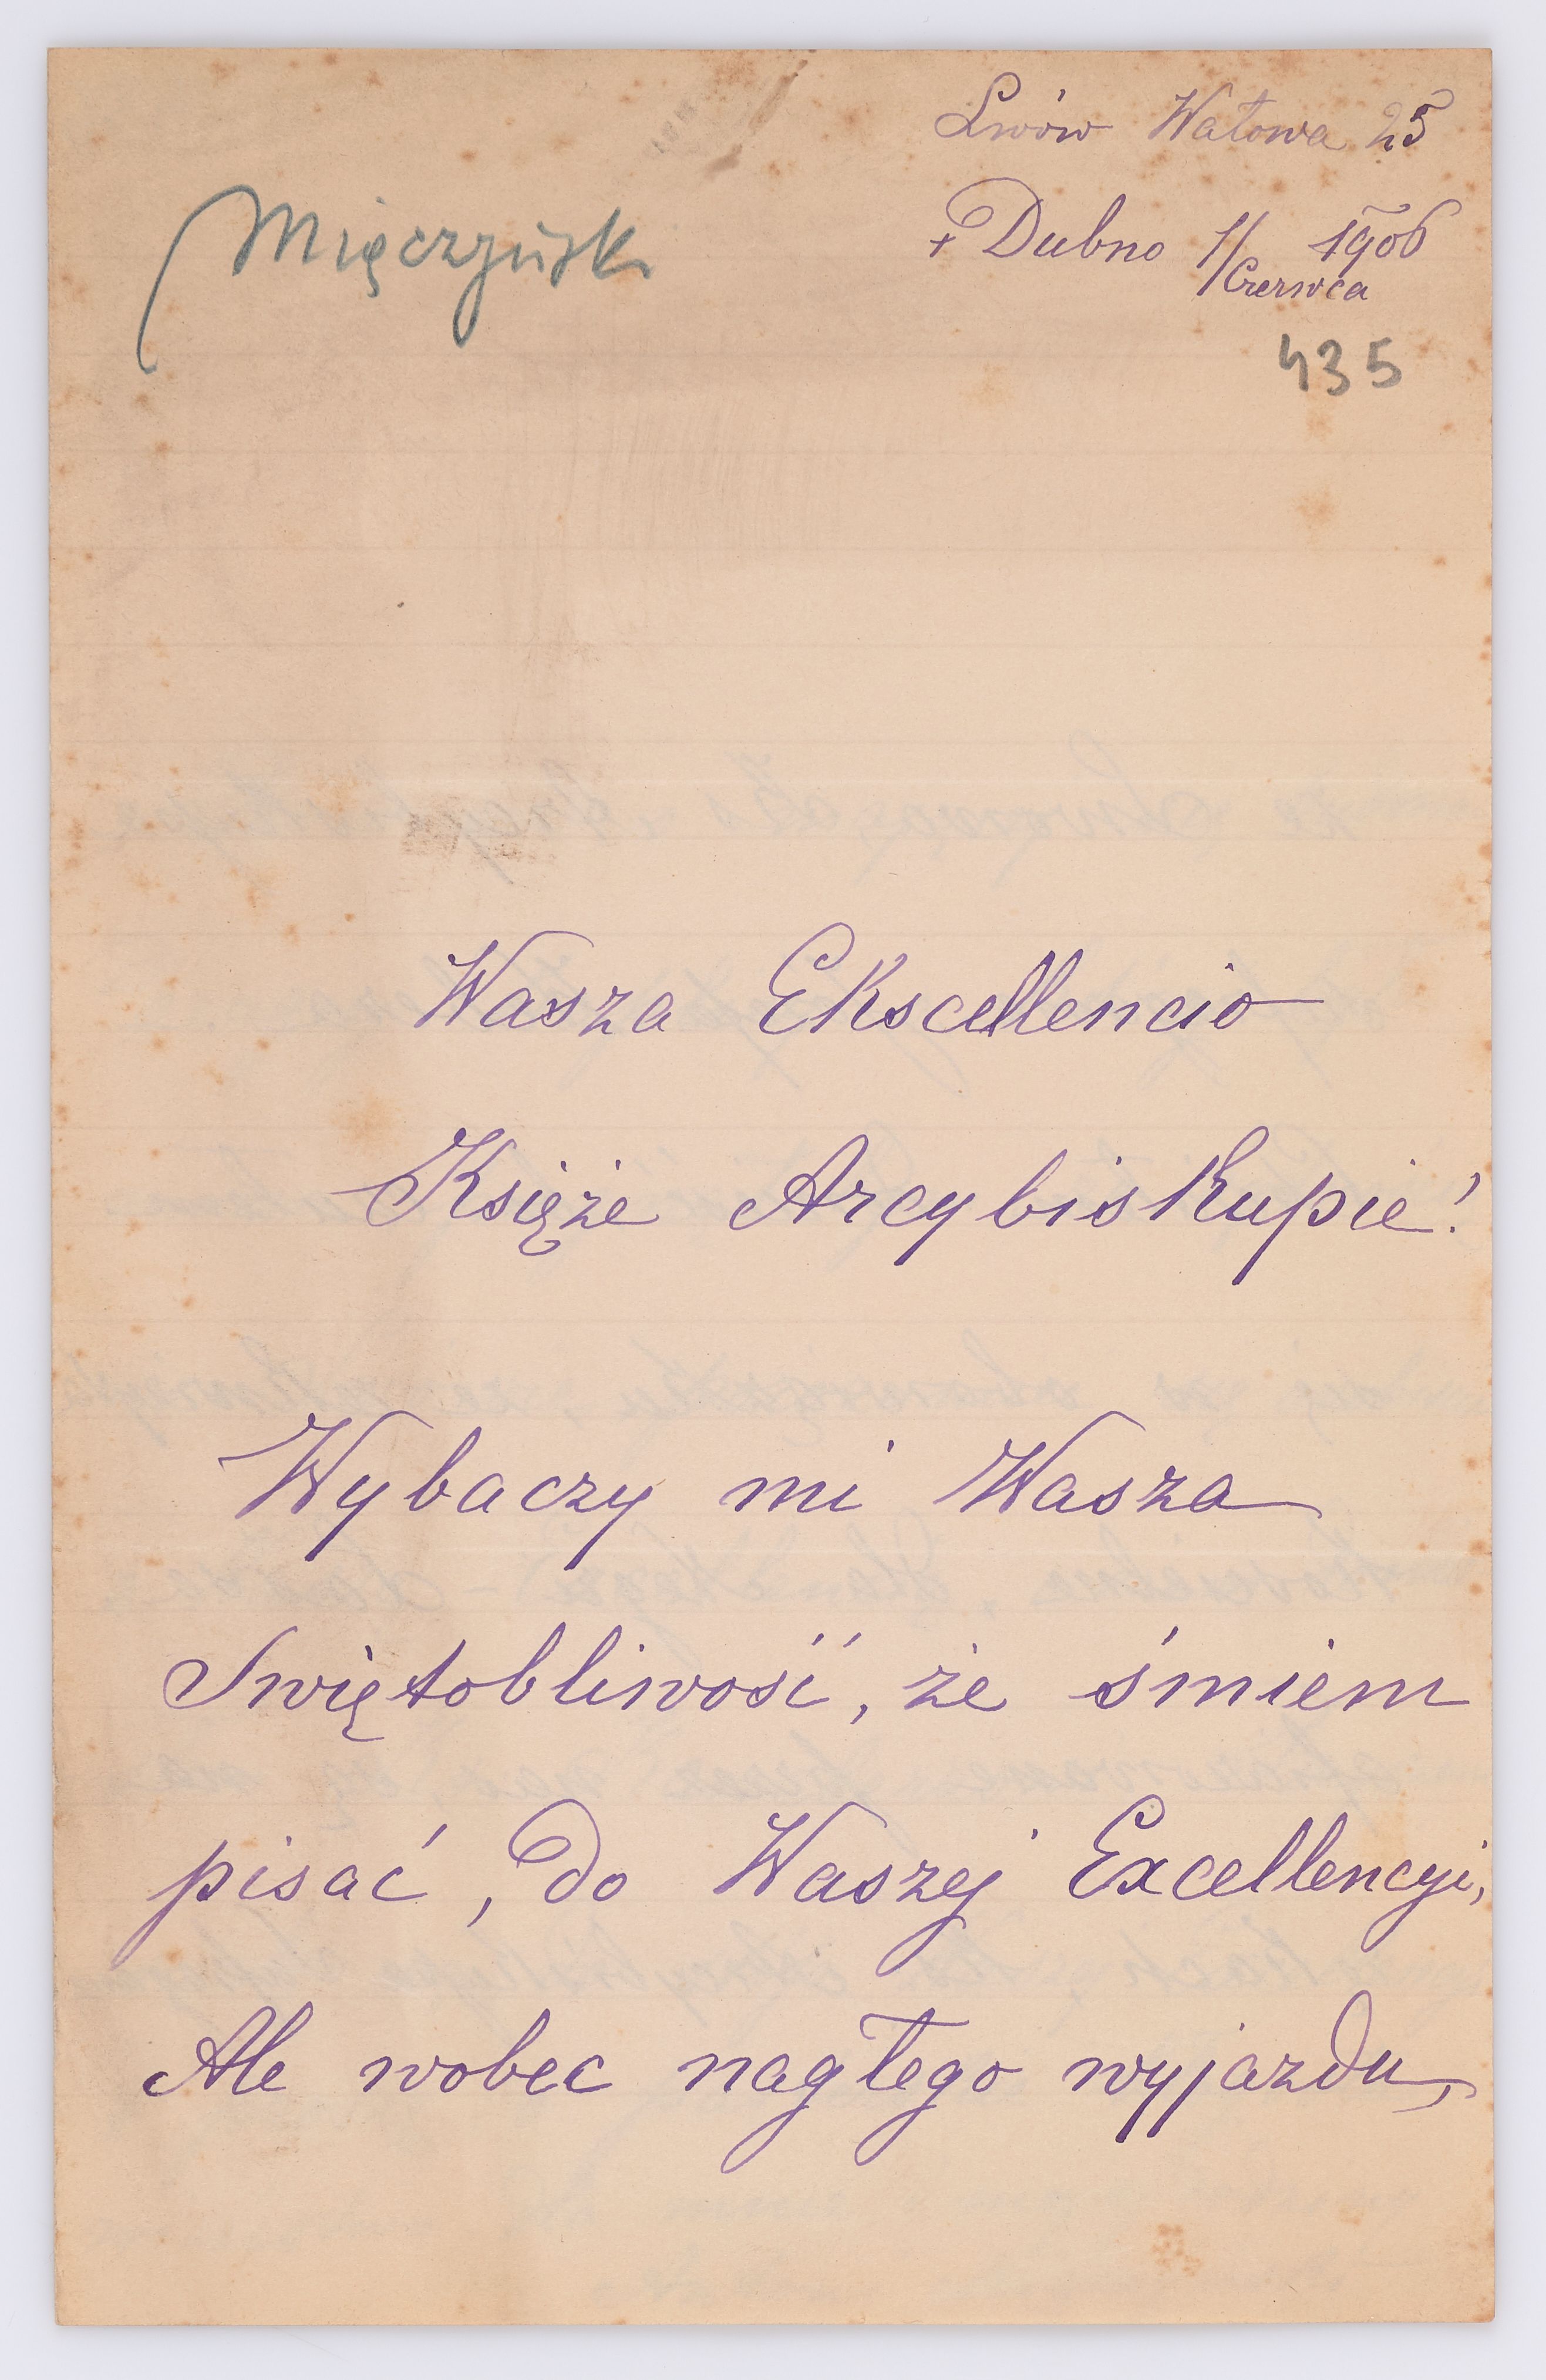 Lwów Wałowa 25
Mięczyński
+ Dubno 1/Czerwca 1906
435
Wasza Ekscellencio
Księże Arcybiskupie!
Wybaczy mi Wasza
Swiętobliwość, że śmiem
pisać, do Waszej Excellencyi,
Ale wobec nagłego wyjazdu,